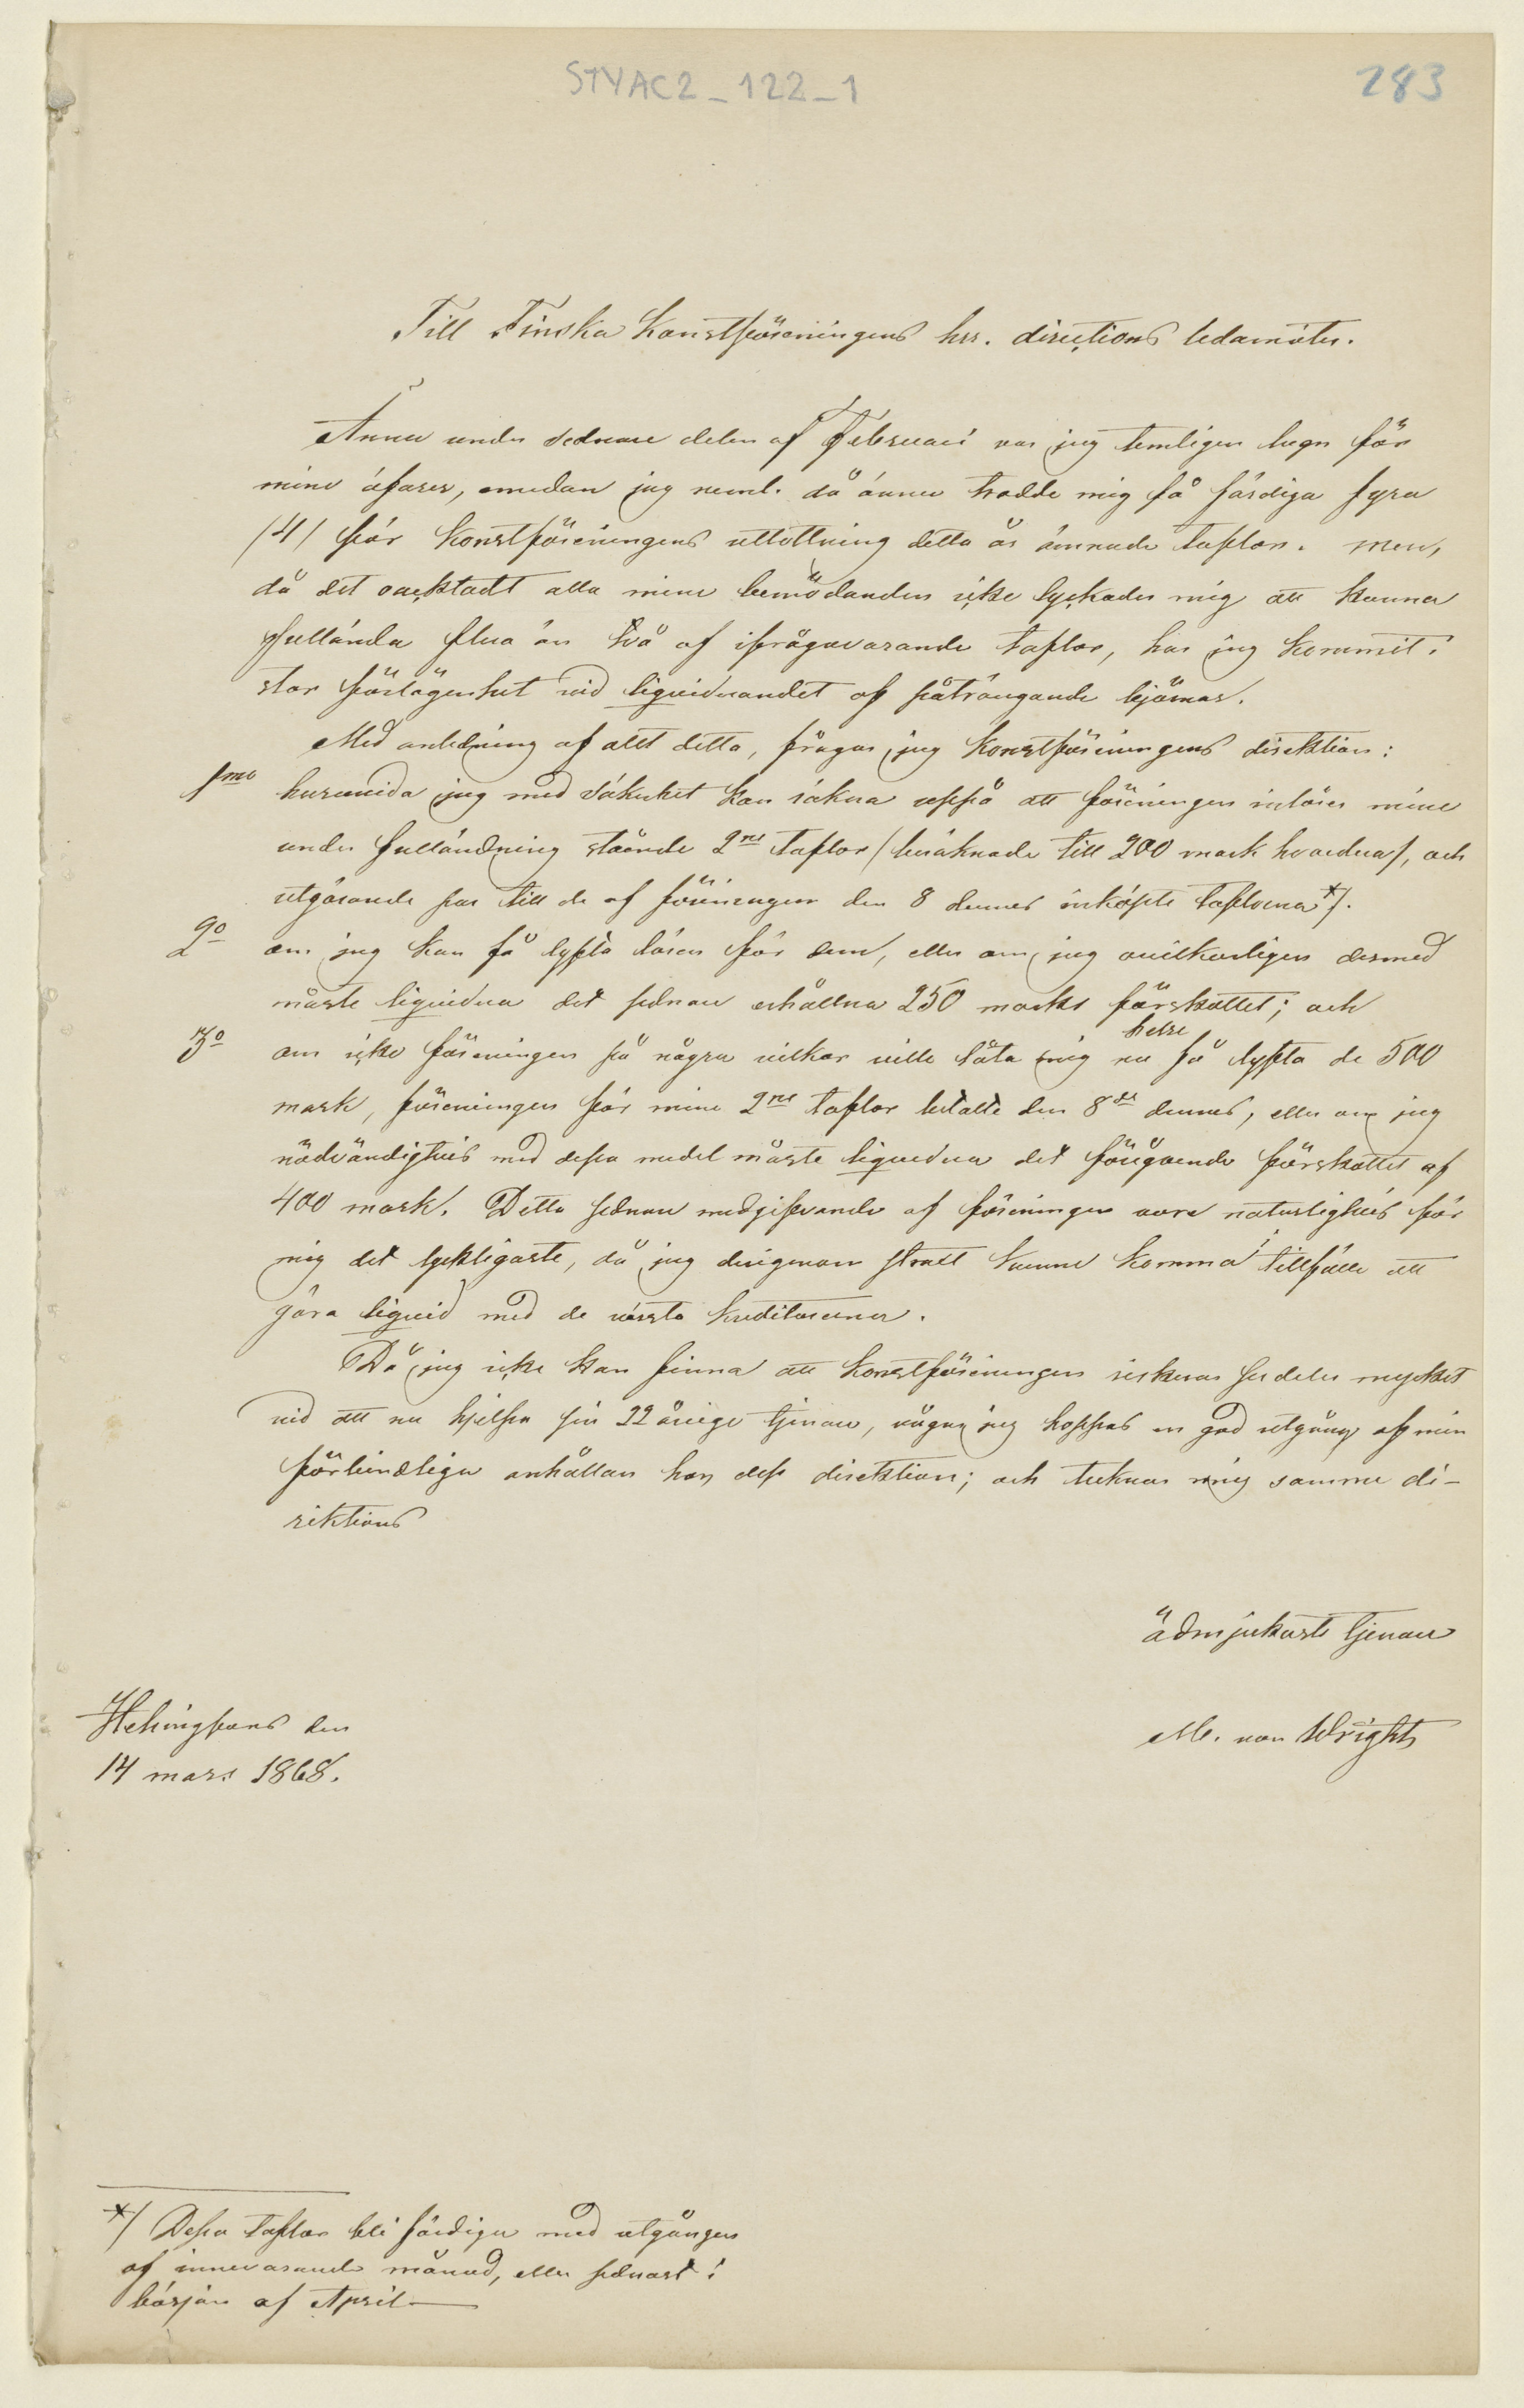 STYAC2_122_1
283
Till Finska Konstföreningens hrr. direçtions ledamöter.
Ännu under sednare delen af Februari var jag temligen lugn för
mine afärer, emedan jag neml. då ännu trodde mig få färdiga fyra
/4/ för Konstföreningens utlottning detta år ämnade taflor. Men,
då det oacktadt alla mine bemödanden icke lyckades mig att kunna
fullända flera än två af ifrågavarande taflor, har jag kommit i
stor förlägenhet vid liquiderandet af påträngande björnar.
Med anledning af allt detta, frågar jag Konstföreningens direktion:
1mo huruvida jag med säkerhet kan räkna uppå att föreningen inlöser mine
under fulländning stående 2ne taflor /beräknade till 200 mark hvardera/, och
utgörande par till de af föreningen den 8 dennes inköpte taflorna*/.
2o om jag kan få lyfta lösen för dem, eller om jag ovilkorligen dermed
måste liquidera det sednare erhållna 250 marks förskottet; och
helre
3o om icke föreningen på några vilkor ville låta mig nu få lyfta de 500
mark, föreningen för mine 2ne taflor betalte den 8de dennes, eller om jag
nödvändigtvis med dessa medel måste liquidera det föregående förskottet af
400 mark. Detta sednare medgifvande af föreningen vore naturligtvis för
mig det lyckligaste, då jag derigenom strax kunne komma i tillfälle att
göra liquid med de värsta kreditorerna.
Då jag icke kan finna att Konstföreningen riskerar serdeles mycket
vid att nu hjelpa sin 22 årige tjenare, vågar jag hoppas en god utgång af min
förbindliga anhållan hos dess direktion; och teknar mig samma di-
rektions
ödmjukaste tjenare
M. von Wright
Helsingfors den
14 mars 1868.
*/ Dessa taflor bli färdiga med utgången
af innevarande månad, eller sednast i
början af April